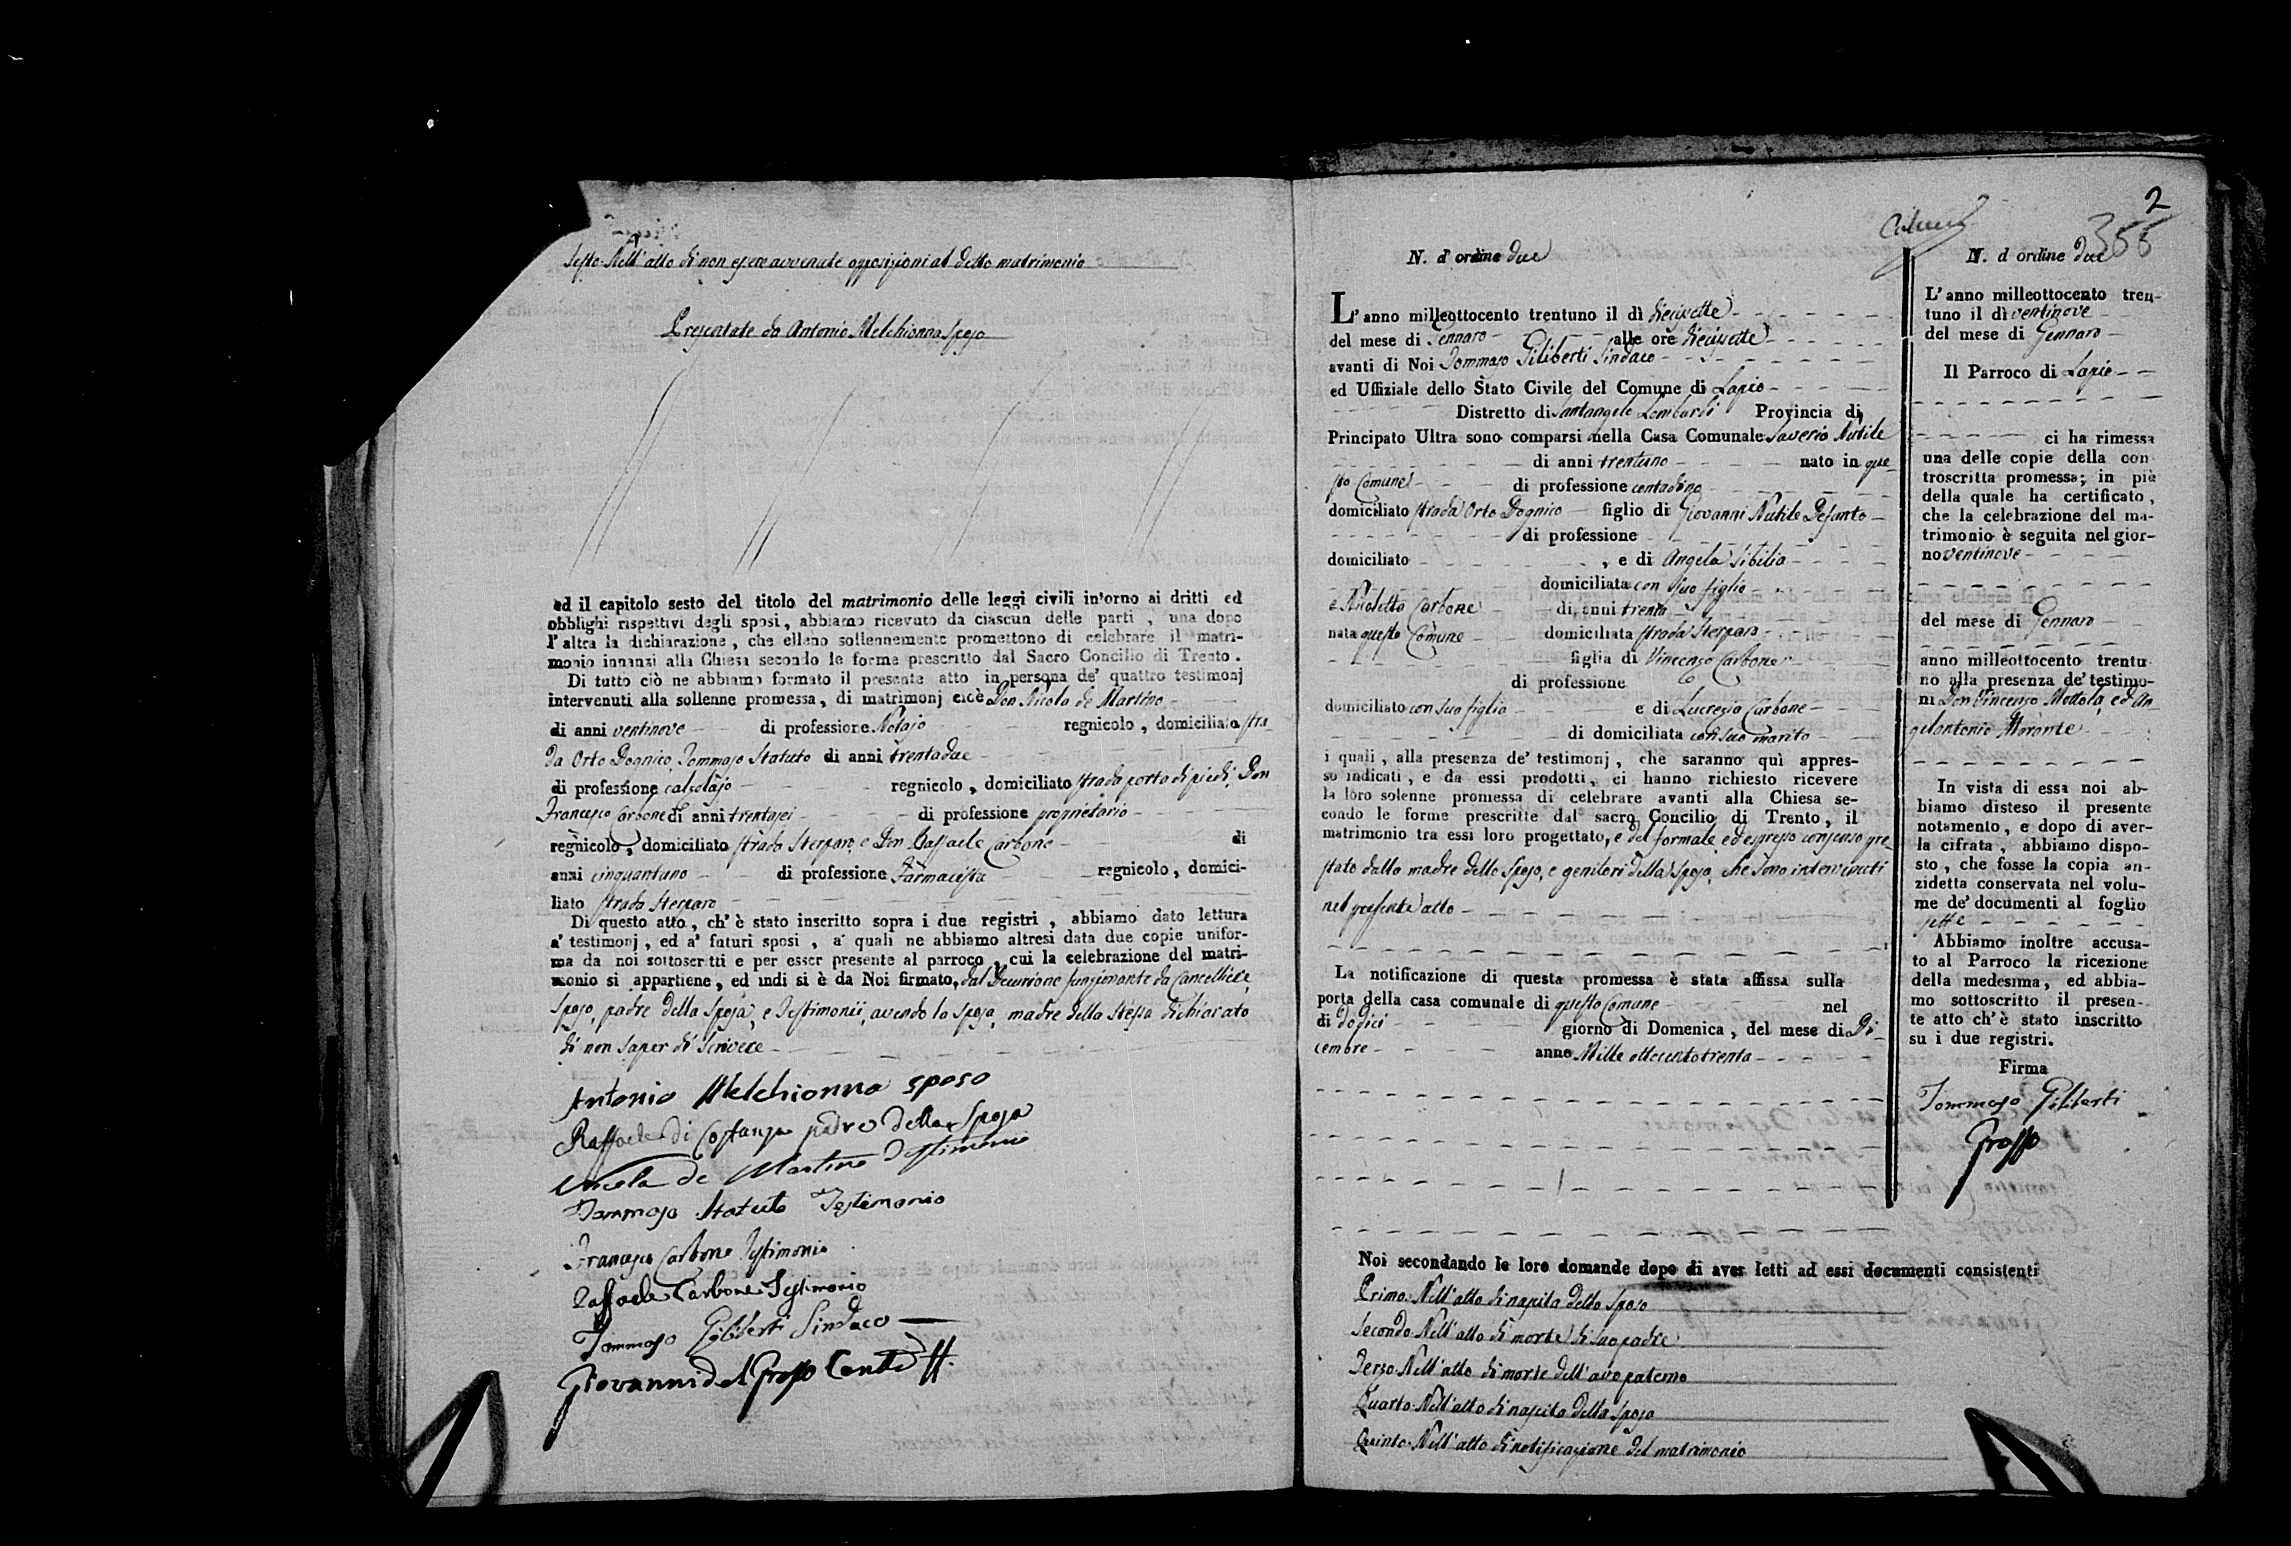 Sesto. Nell'atto di non essere avvenute opposizioni al detto matrimonio
Presentate da Antonio Melchionna sposo
ed il capitolo sesto del titolo del matrimonio delle leggi civili intorno ai dritti ed
obblighi rispettivi degli sposi, abbiamo ricevuto da ciascun delle parti, una dopo
l'altra la dichiarazione, che elleno sollennemente promettono di celebrare il matri-
monio innanzi alla Chiesa secondo le forme prescritto dal Sacro Concilio di Trento.
Di tutto ciò ne abbiamo formato il presente atto in persona de' quattro testimonj
intervenuti alla sollenne promessa, di matrimonj cicè Don Nicola de Martino
di anni ventinove di professione Notajo regnicolo, domiciliato stra
da Orto Dognico, Tommaso Statuto di anni trentadue
di professione calzolajo regnicolo, domiciliato strada porta di piedi, Don
Francesco Carbone di anni trentasei di professione proprietario
regnicolo, domiciliato strada Sterparo, e Don Raffaele Carbone di
anni cinquantuno di professione Farmacista regnicolo, domici-
liato strada Sterparo
Di questo atto, ch' è stato inscritto sopra i due registri, abbiamo dato lettura
a' testimonj, ed a' futuri sposi, a' quali ne abbiamo altresì data due copie unifor-
ma da noi sottoscritti e per esser presente al parroco, cui la celebrazione del matri-
monio si appartiene, ed indi si è da Noi firmato, dal Decurione funzionante da Cancelliere,
sposo, padre della sposa, e Testimonii, avendo la sposa, madre della stessa dichiarato
di non saper di scrivere
Antonio Melchionna sposo
Raffaele di Costanza padre della sposa
Nicola de Martino Testimonio
Tommaso Statuto Testimonio
Francesco Carbone Testimonio
Raffaele Carbone Testimonio
Tommaso Giliberti Sindaco
Giovanni del Grosso
2
355
N. d'ordine due
L'anno milleottocento trentuno il dì diecisette
del mese di Gennaro alle ore diecisette
avanti di Noi Tommaso Giliberti Sindaco
ed Uffiziale dello Stato Civile del Comune di Lapio
Distretto di Santangelo Lombardi Provincia di
Principato Ultra sono comparsi nella Casa Comunale Saverio Nutile
di anni trentuno nato in que
sto Comune di professione contadino
domiciliato strada Orto Dognico figlio di Giovanni Nutile Defunto
di professione
domiciliato , e di Angela Sibilia
domiciliata con suo figlio
e Nicoletta Carbone di anni trenta
nata questo Comune domiciliata strada Sterparo
figlia di Vincenzo Carbone
di professione
domiciliato con suo figlio e di Lucrezia Carbone
di domiciliata con suo marito
i quali, alla presenza de' testimonj, che saranno quì appres-
so indicati, e da essi prodotti, ci hanno richiesto ricevere
la loro solenne promessa di celebrare avanti alla Chiesa se-
condo le forme prescritte dal sacro Concilio di Trento, il
matrimonio tra essi loro progettato, e del formale, ed espresso consenso pre
stato dalla madre dello sposo, e genitori della sposa, che sono intervenuti
nel presente atto
La notificazione di questa promessa è stata affissa sulla
porta della casa comunale di questo Comune nel
di dodici giorno di Domenica, del mese di Di
cembre anno Mille ottocento trenta
Noi secondando le loro domande dopo di aver letti ad essi documenti consistenti
Primo. Nell'atto di nascita dello sposo
Secondo. Nell'atto di morte di suo padre
Terzo. Nell'atto di morte dell'avo paterno
Quarto. Nell'atto di nascita della sposa
Quinto. Nell'atto di notificazione del matrimonio
N. d ordine due
L'anno milleottocento tren-
tuno il dì ventinove
del mese di Gennaro
Il Parroco di Lapio
ci ha rimessa
una delle copie della con
troscritta promessa; in piè
della quale ha certificato,
che la celebrazione del ma-
trimonio è seguita nel gior-
no ventinove
del mese di Gennaro
anno milleottocento trentu
no alla presenza de' testimo-
ni Don Vincenzo Mottola, ed An
gelantonio Morante
In vista di essa noi ab-
biamo disteso il presente
notamento, e dopo di aver-
la cifrata, abbiamo dispo-
sto, che fosse la copia an-
zidetta conservata nel volu-
me de' documenti al foglio
sette
Abbiamo inoltre accusa-
to al Parroco la ricezione
della medesima, ed abbia-
mo sottoscritto il presen-
te atto ch'è stato inscritto
su i due registri.
Firma
Tommaso Giliberti
Grosso